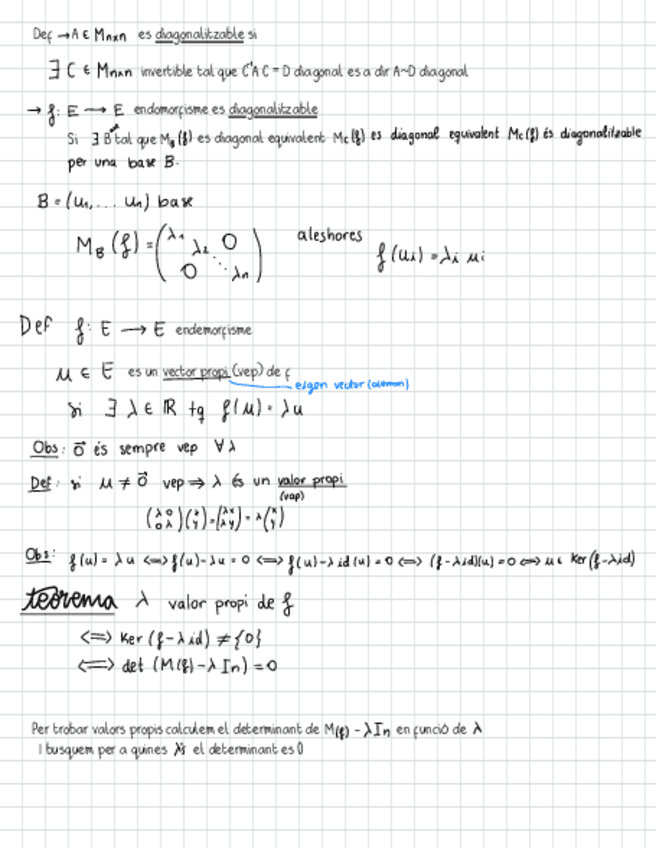 Def → A ∈ Mnxn es diagonalitzable si
∃ C ∈ Mnxn invertible tal que C⁻¹AC = D diagonal es a dir A~D diagonal
→ f: E → E endomorfisme es diagonalitzable
Si ∃ B tal que M_B(f) es diagonal equivalent Mc(f) es diagonal equivalent Mc(f) és diagonalitzable
per una base B.
B = (u₁, ... uₙ) base
M_B(f) = (λ₁ λ₂ 0 ⋱ 0 λₙ) aleshores f(uᵢ) = λᵢ uᵢ
Def f: E → E endemorfisme
u ∈ E es un vector propi (vep) de f
eigen vector (aleman)
si ∃ λ ∈ ℝ tq f(u) = λu
Obs: 0⃗ és sempre vep ∀λ
Def: si u ≠ 0⃗ vep ⇒ λ és un valor propi
(vap)
(λ 0 / 0 λ)(x / y) = (λx / λy) = λ(x / y)
Obs: f(u) = λu ⟺ f(u) - λu = 0 ⟺ f(u) - λ id(u) = 0 ⟺ (f - λid)(u) = 0 ⟺ u ∈ Ker(f - λid)
teorema λ valor propi de f
⟺ Ker (f - λ id) ≠ {0}
⟺ det (M(f) - λ In) = 0
Per trobar valors propis calculem el determinant de M(f) - λIn en funció de λ
I busquem per a quines λ's el determinant es 0